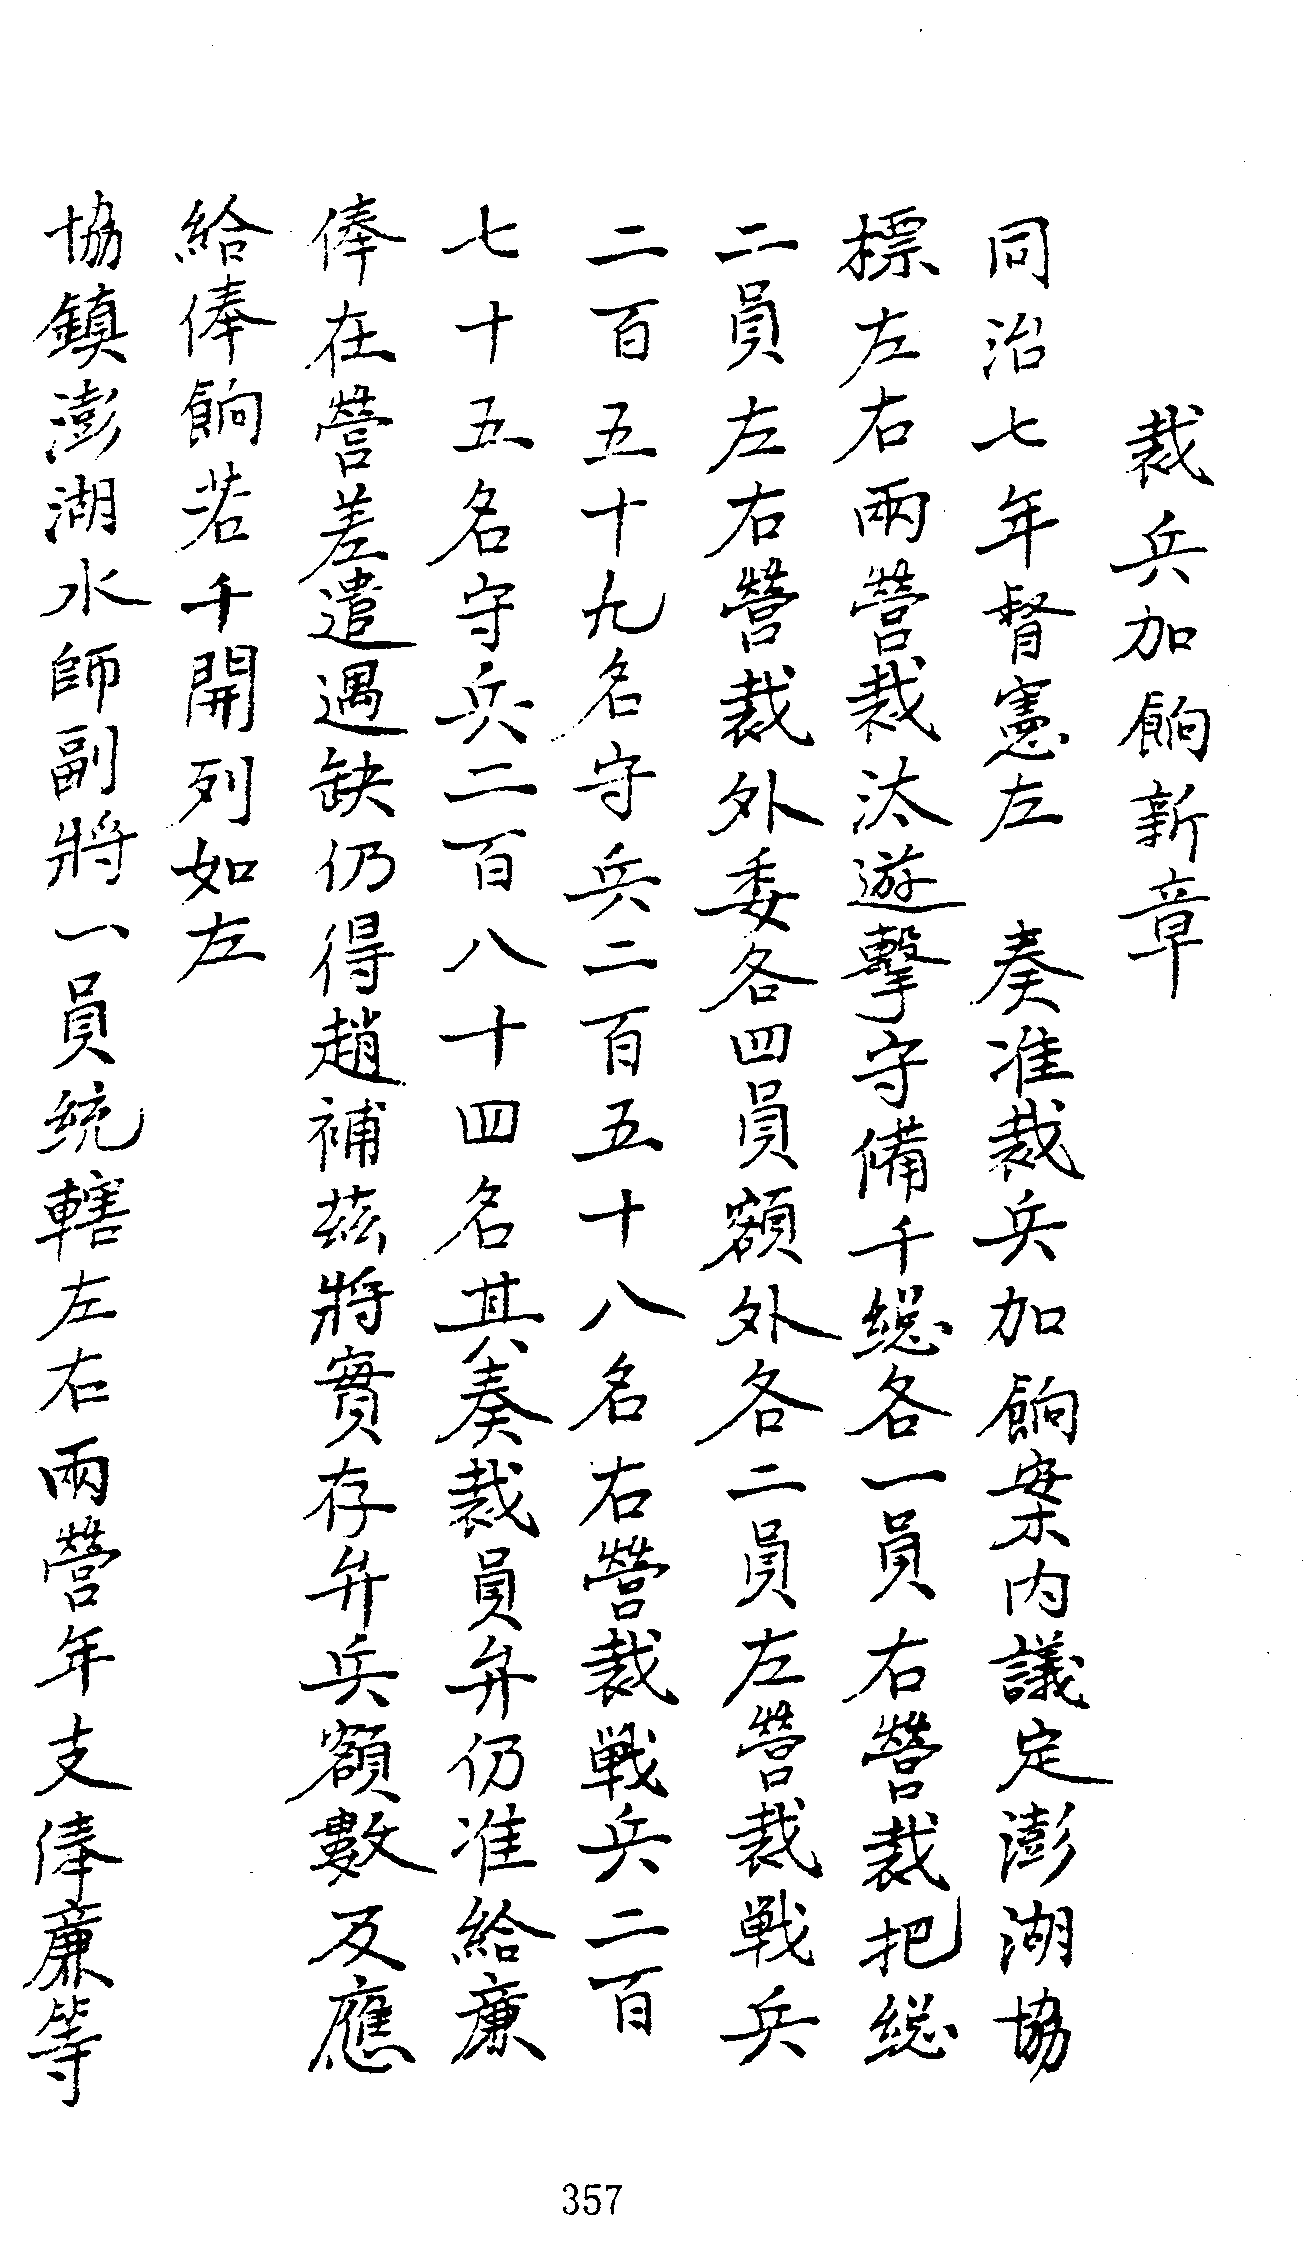 裁兵加餉新章
同治七年督憲左　奏准裁兵加餉案內議定澎湖協
標左右兩營裁汰遊擊守備千總各一員右營裁把総
二員左右營裁外委各四員額外各二員左營裁戰兵
二百五十九名守兵二百五十八名右營裁戰兵二百
七十五名守兵二百八十四名其奏裁員弁仍准給廉
俸在營差遣遇缺仍得趙補茲將實存弁兵額數及應
給俸餉若千開列如左
協鎮澎湖水師副將一員統轄左右兩營年支俸廉等
357